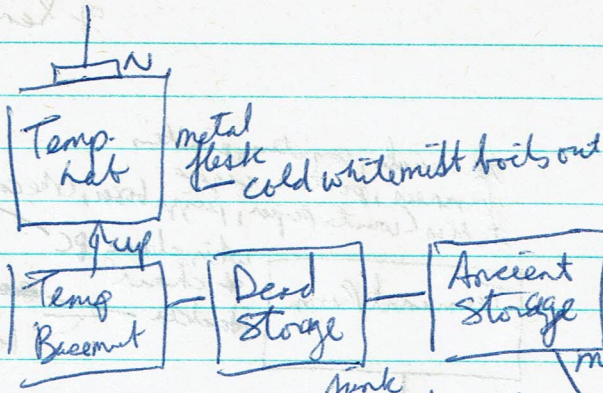 N
Temp.
Lab
metal
flask
cold white mist boils out
up
Temp
Basement
Dead
Storage
Ancient
Storage
junk
m